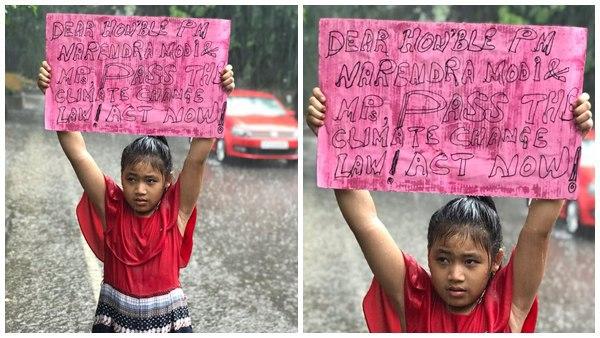 DEAR HON'BLE PM
NARENDRA MODI &
MPs, PASS THE
CLIMATE CHANGE
LAW! ACT NOW!
DEAR HON'BLE PM
NARENDRA MODI &
MPs, PASS THE
CLIMATE CHANGE
LAW! ACT NOW!